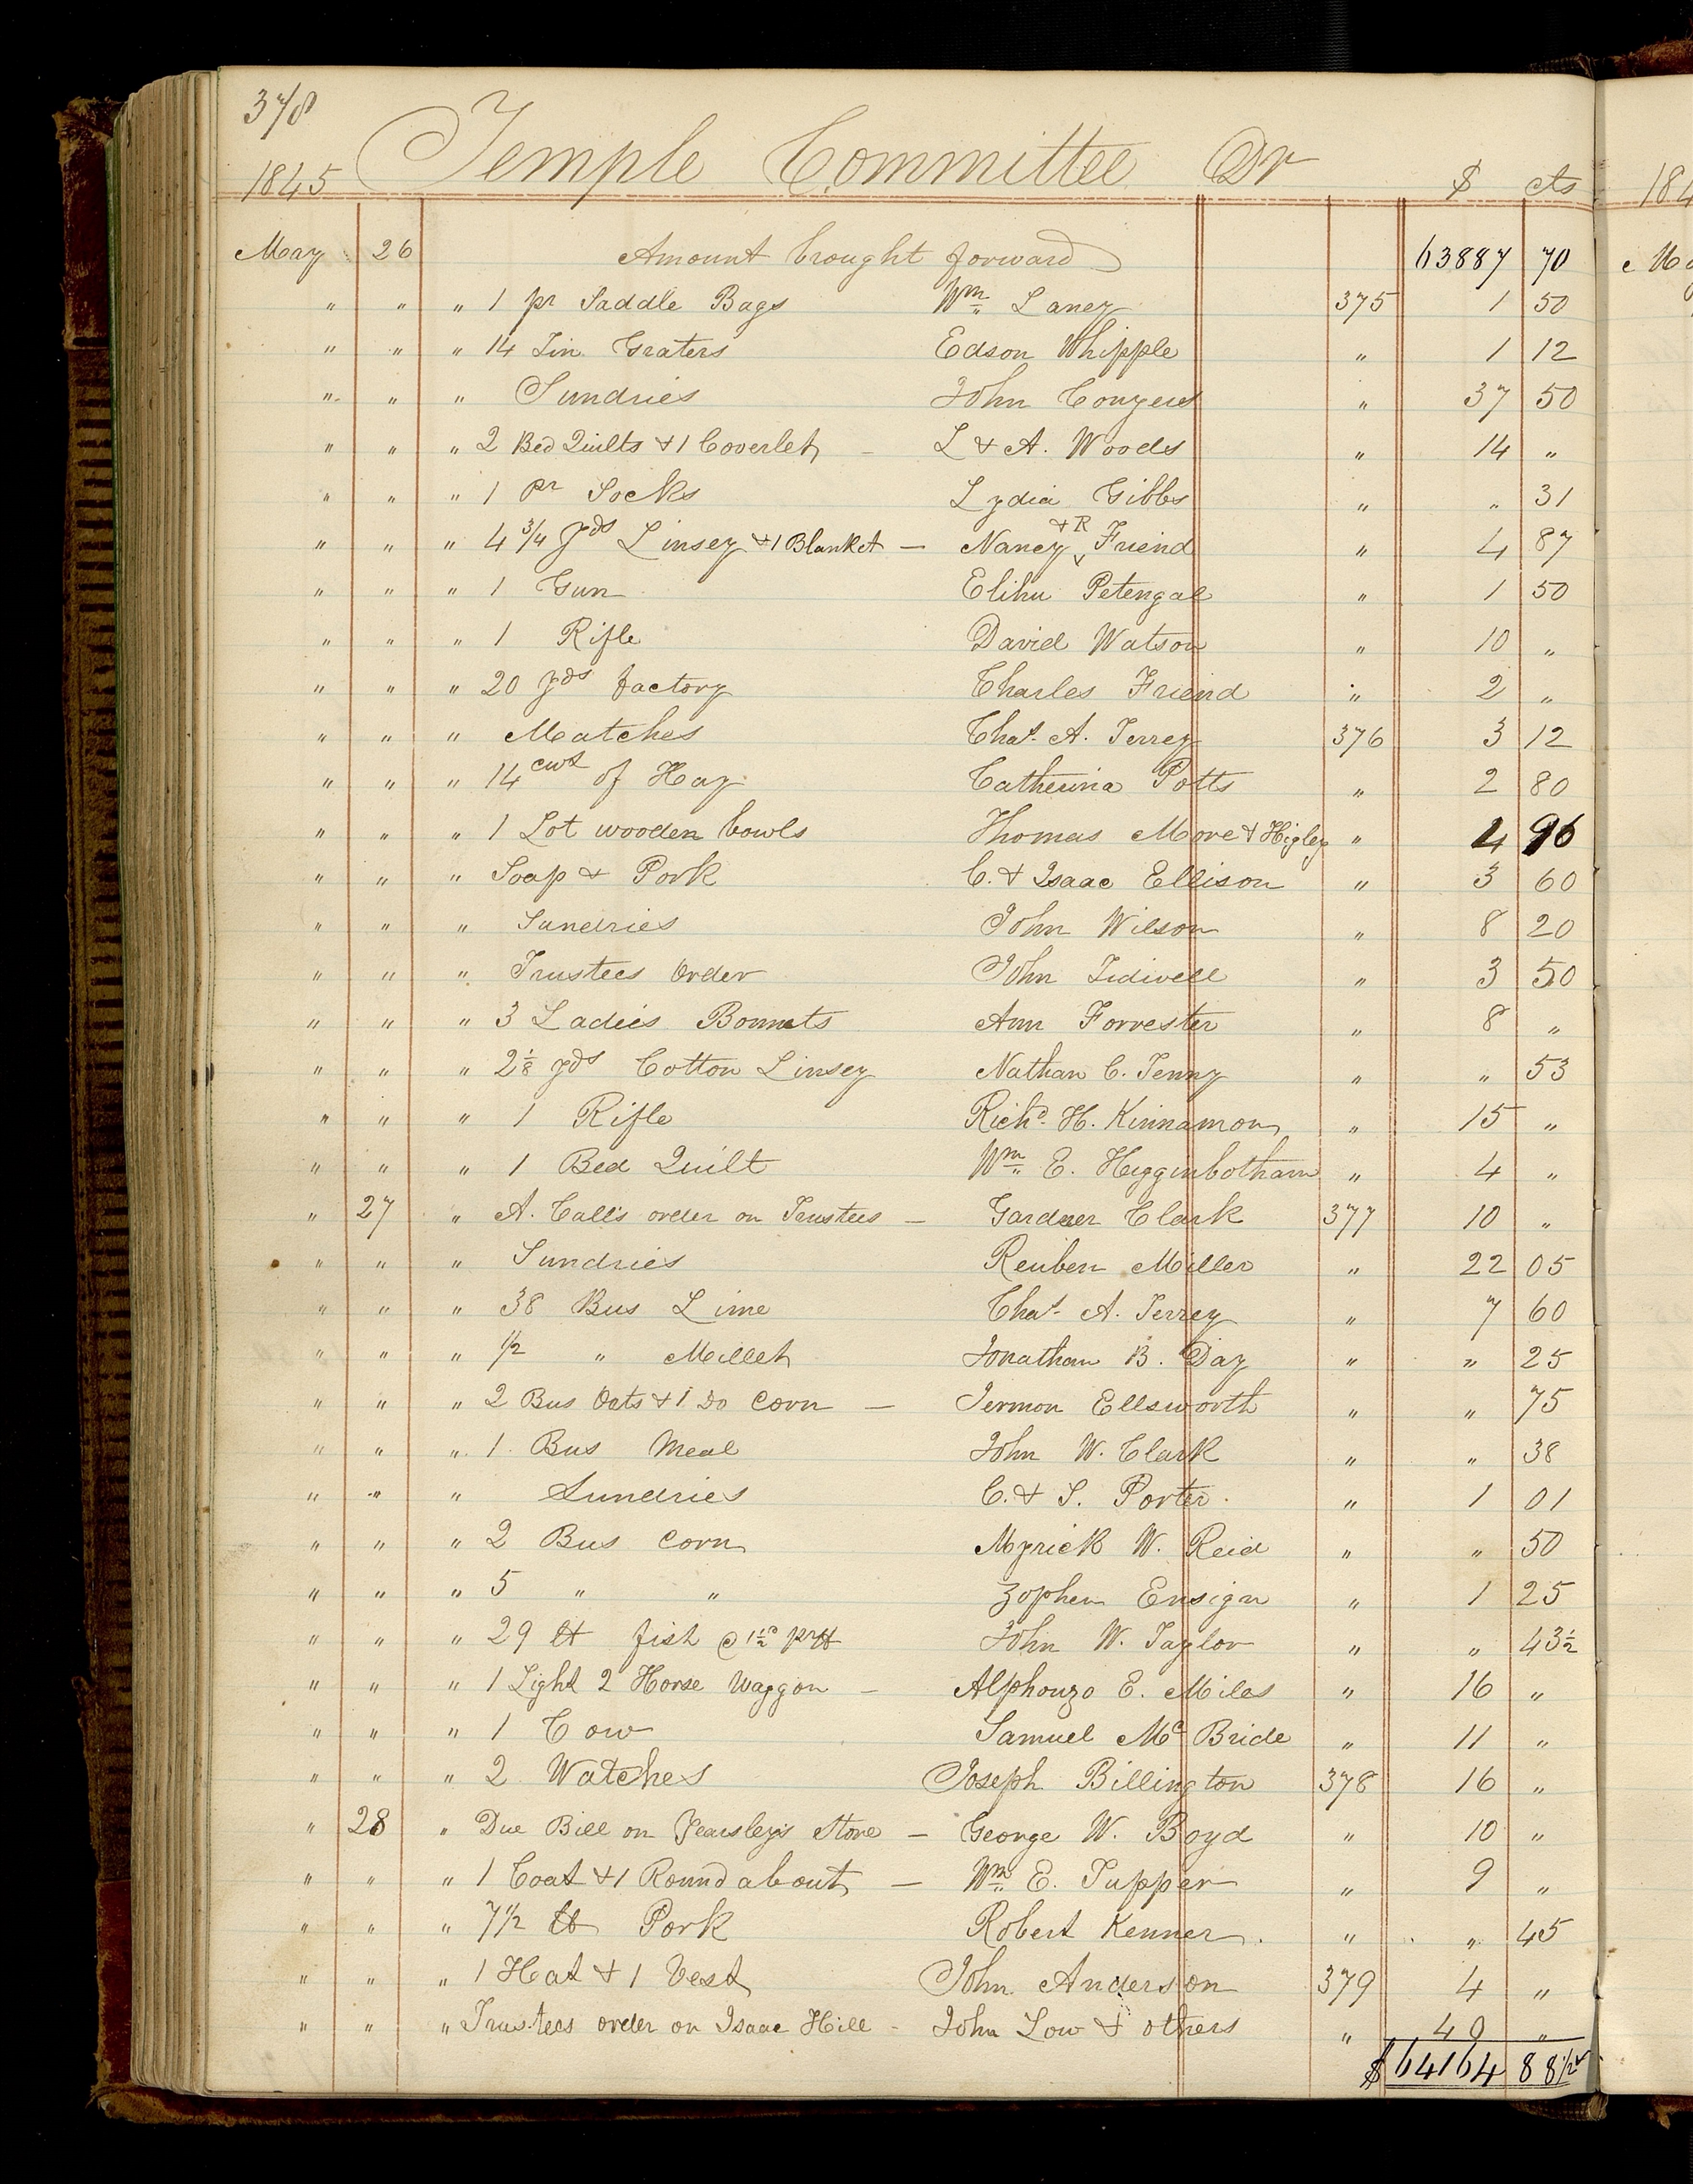 378
1845 Temple Committee Dr $ cts
May 26 Amount brought forward 63887 70
" " " 1 pr Saddle Bags Wm Laney 375 1 50
" " " 14 Tin Graters Edson Whipple " 1 12
" " " Sundries John Conyers " 37 50
" " " 2 Bed Quilts & 1 Coverlet — L & A. Woods " 14 "
" " " 1 Pr Socks Lydia Gibbs " " 31
" " " 4 3/4 Yds Linsey & 1 Blanket — Nancy & R Friend " 4 87
" " " 1 Gun Elihu Petengal " 1 50
" " " 1 Rifle David Watson " 10 "
" " " 20 Yds factory Charles Friend " 2 "
" " " Matches Chas. A. Terrey 376 3 12
" " " 14 cwt of Hay Catherina Potts " 2 80
" " " 1 Lot wooden bowls Thomas More & Higley " 4 96
" " " Soap & Pork C. & Isaac Ellison " 3 60
" " " Sundries John Wilson " 8 20
" " " Trustees Order John Tidwell " 3 50
" " " 3 Ladies Bonnets Ann Forrester " 8 "
" " " 2 1/8 Yds Cotton Linsey Nathan C. Tenny " " 53
" " " 1 Rifle Richd. H. Kinnamon " 15 "
" " " 1 Bed Quilt Wm E. Higginbotham " 4 "
" 27 " A. Call's order on Trustees — Gardner Clark 377 10 "
" " " Sundries Reuben Miller " 22 05
" " " 38 Bus Lime Chas. A. Terrey " 7 60
" " " 1/2 " Millet Jonathan B. Day " " 25
" " " 2 Bus Oats & 1 Do Corn — Jermon Ellsworth " " 75
" " " 1 Bus Meal John W. Clark " " 38
" " " Sundries C. & S. Porter. " 1 01
" " " 2 Bus Corn Myrick W. Reid " " 50
" " " 5 " " Zopher Ensign " 1 25
" " " 29 lb fish @ 1 1/2 c pr lb John W. Taylor " " 43 1/2
" " " 1 Light 2 Horse Waggon — Alphonzo E. Miles " 16 "
" " " 1 Cow Samuel Mc Bride " 11 "
" " " 2 Watches Joseph Billington 378 16 "
" 28 " Due Bill on Yearsley's Store — George W. Boyd " 10 "
" " " 1 Coat & 1 Round about — Wm E. Tupper " 9 "
" " " 7 1/2 lb Pork Robert Kenner. " " 45
" " " 1 Hat & 1 Vest John Anderson 379 4 "
" " " Trustees order on Isaac Hill - John Low & others " 40 "
$ 64164 88 1/2